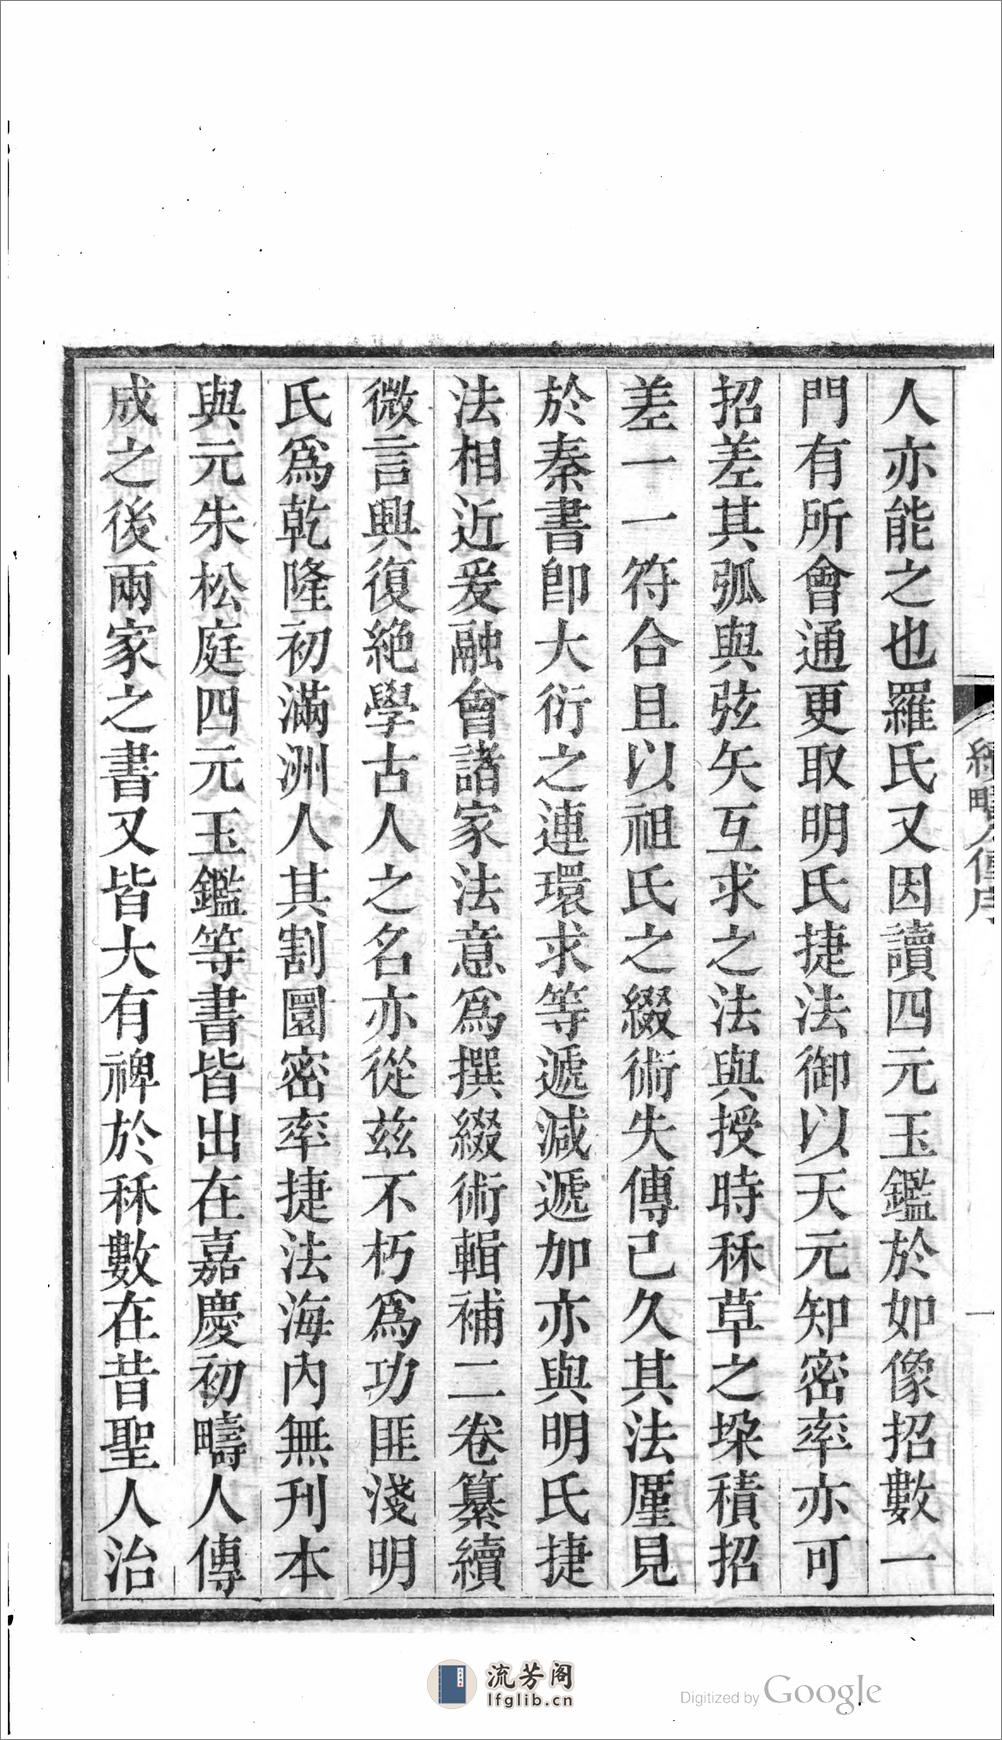 人亦能之也羅氏又因讀四元玉鑑於如像招數一
門有所會通更取明氏捷法御以天元知密率亦可
招差其弧與弦矢互求之法與授時秝草之垜積招
差一一符合且以祖氏之綴術失傳已久其法厪見
於秦書即大衍之連環求等遞減遞加亦與明氏捷
法相近爰融會諸家法意爲撰綴術輯補二卷纂續
微言興復絶學古人之名亦從茲不朽爲功匪淺明
氏爲乾隆初滿洲人其割圜密率捷法海内無刊本
與元朱松庭四元玉鑑等書皆出在嘉慶初疇人傳
成之後兩家之書又皆大有裨於秝數在昔聖人治
續疇人傳序
一
流芳阁
lfglib.cn
Digitized by Google